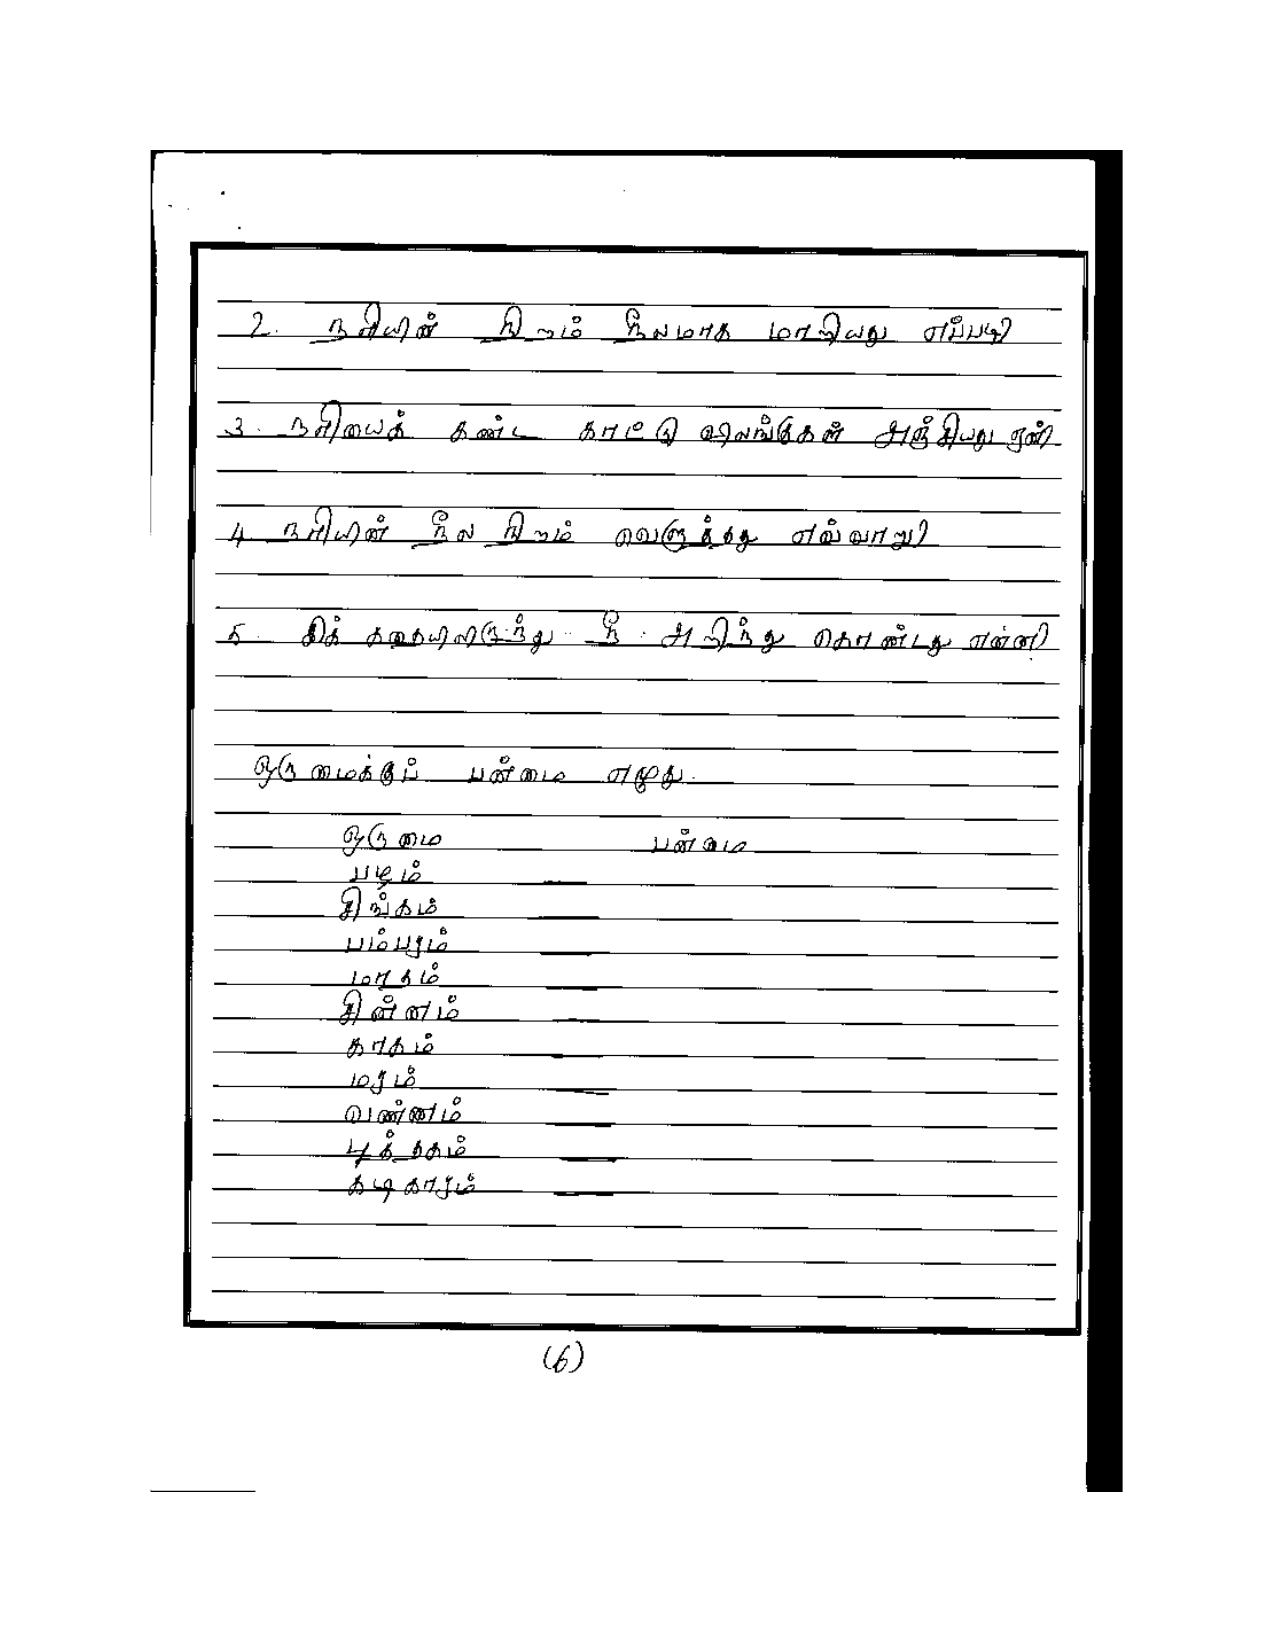 2. நரியின் நிறம் நீலமாக மாறியது எப்படி?
3. நரியைக் கண்ட காட்டு விலங்குகள் அஞ்சியது ஏன்?
4. நரியின் நீல நிறம் வெளுத்தது எவ்வாறு?
5. இக் கதையிலிருந்து நீ அறிந்து கொண்டது என்ன?
ஒருமைக்குப் பன்மை எழுது.
ஒருமை பன்மை
படிம்
சிங்கம்
பம்பரம்
மாதம்
சின்னம்
காகம்
மரம்
வண்ணம்
புத்தகம்
கடிகாரம்
(6)